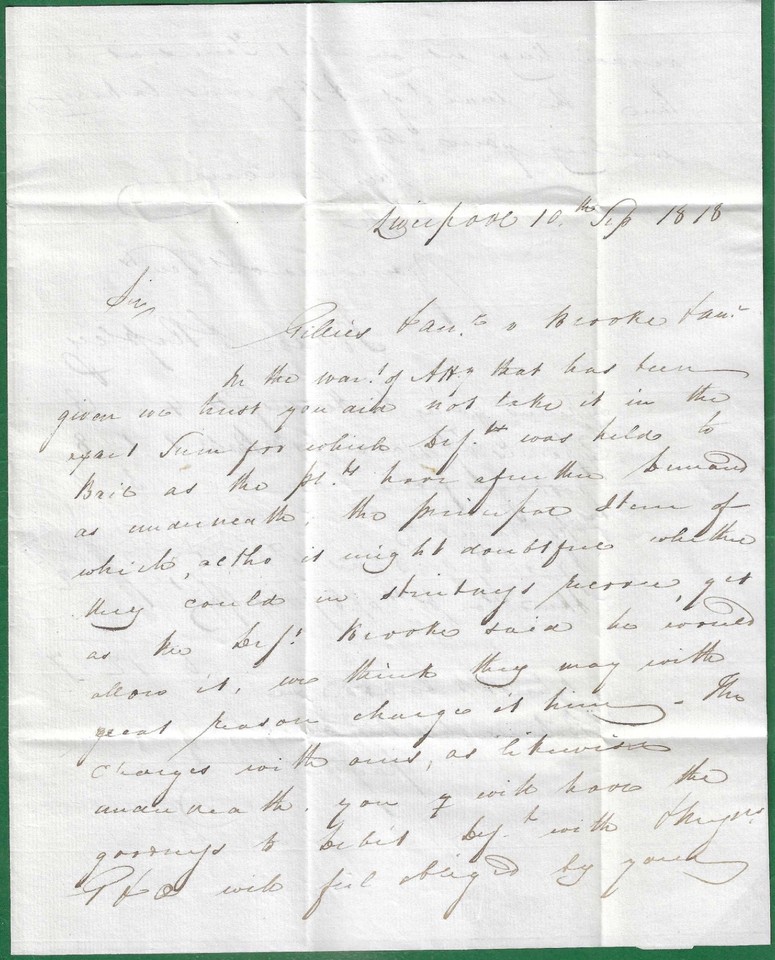 Liverpool 10.th Sep 1818
Sir
Gillies & an.r v Brooke & an.r
In the war.t of Att.y that has been
given we trust you did not take it in the
exact Sum for which Def.t was held to
Bail as the pl.ts have a further Demand
as underneath; the principal Item of
which, altho it might doubtful whether
they could in strictness recover, yet
as the Def.t Brooke said he would
allow it, we think they may with
great reason charge it him – The
Charges with ours, as likewise
underneath. you will have the
goodness to Debit Def.t with &
G & Co will feel obliged by your